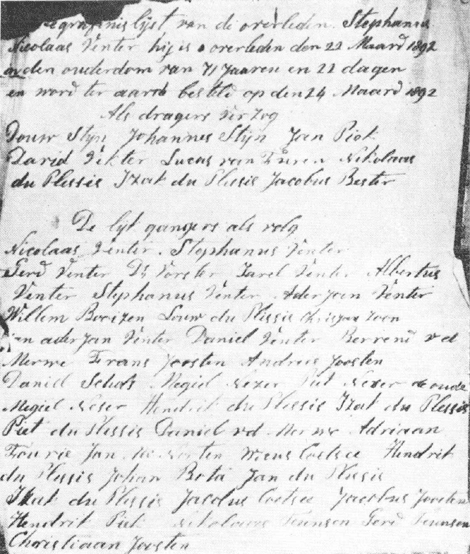 begrafinis lijst van de overleden. Stephanus
Nicolaas Venter hij is overleden den 22 Maard 1892
in den ouderdom van 71 Jaaren en 22 dagen
en word ter aarde besteld op den 24 Maard 1892
Als dragers
Douw Stijn Johannes Stijn Jan Piet
David Lucas van Nikolaas
du Plessis Izak du Plessis Jacobus Bester
De lijk gangers als volg
Nicolaas Venter Stephanus Venter
Gerd Venter Ds Vorster Karel Venter Albertus
Venter Stephanus Venter Aderjaan Venter
Willem Louw du Plessis
Jan aderjan Venter Daniel Venter Berrend v d
Merwe Frans Joosten Andries Joosten
Daniel Megiel Piet de oude
Megiel Hendrik du Plessis Izak du Plessis
Piet du Plessis Daniel vd Merwe Adriaan
Fourie Jan Coetsee Hendrik
du Plessis Johan Bota Jan du Plessis
Izak du Plessis Jacobus Coetsee Jacobus Joosten
Hendrik Piet Nikolaas Gerd
Christiaan Joosten